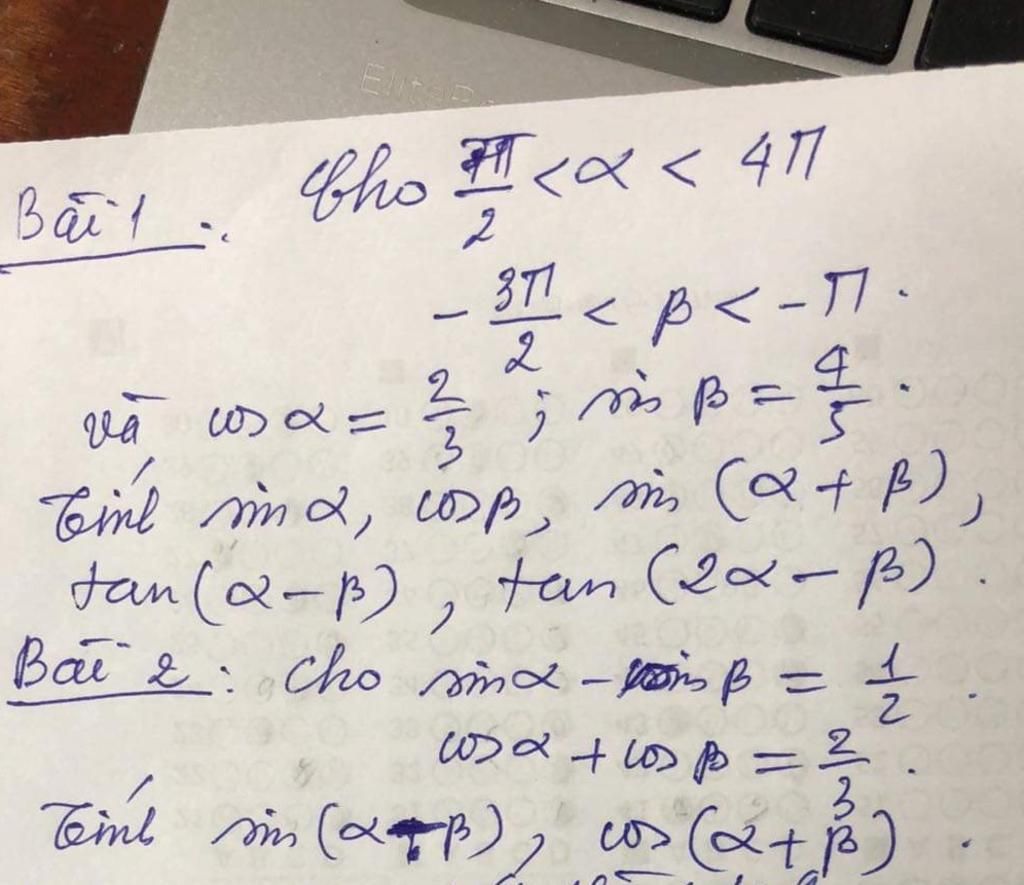 EliteB
Bài 1 : Cho 7π/2 < α < 4π
- 3π/2 < β < - π .
và cos α = 2/3 ; sin β = 4/5 .
Tính sin α, cos β, sin (α + β),
tan (α - β), tan (2α - β) .
Bài 2 : Cho sin α - sin β = 1/2 .
cos α + cos β = 2/3 .
Tính sin (α + β), cos (α + β) .